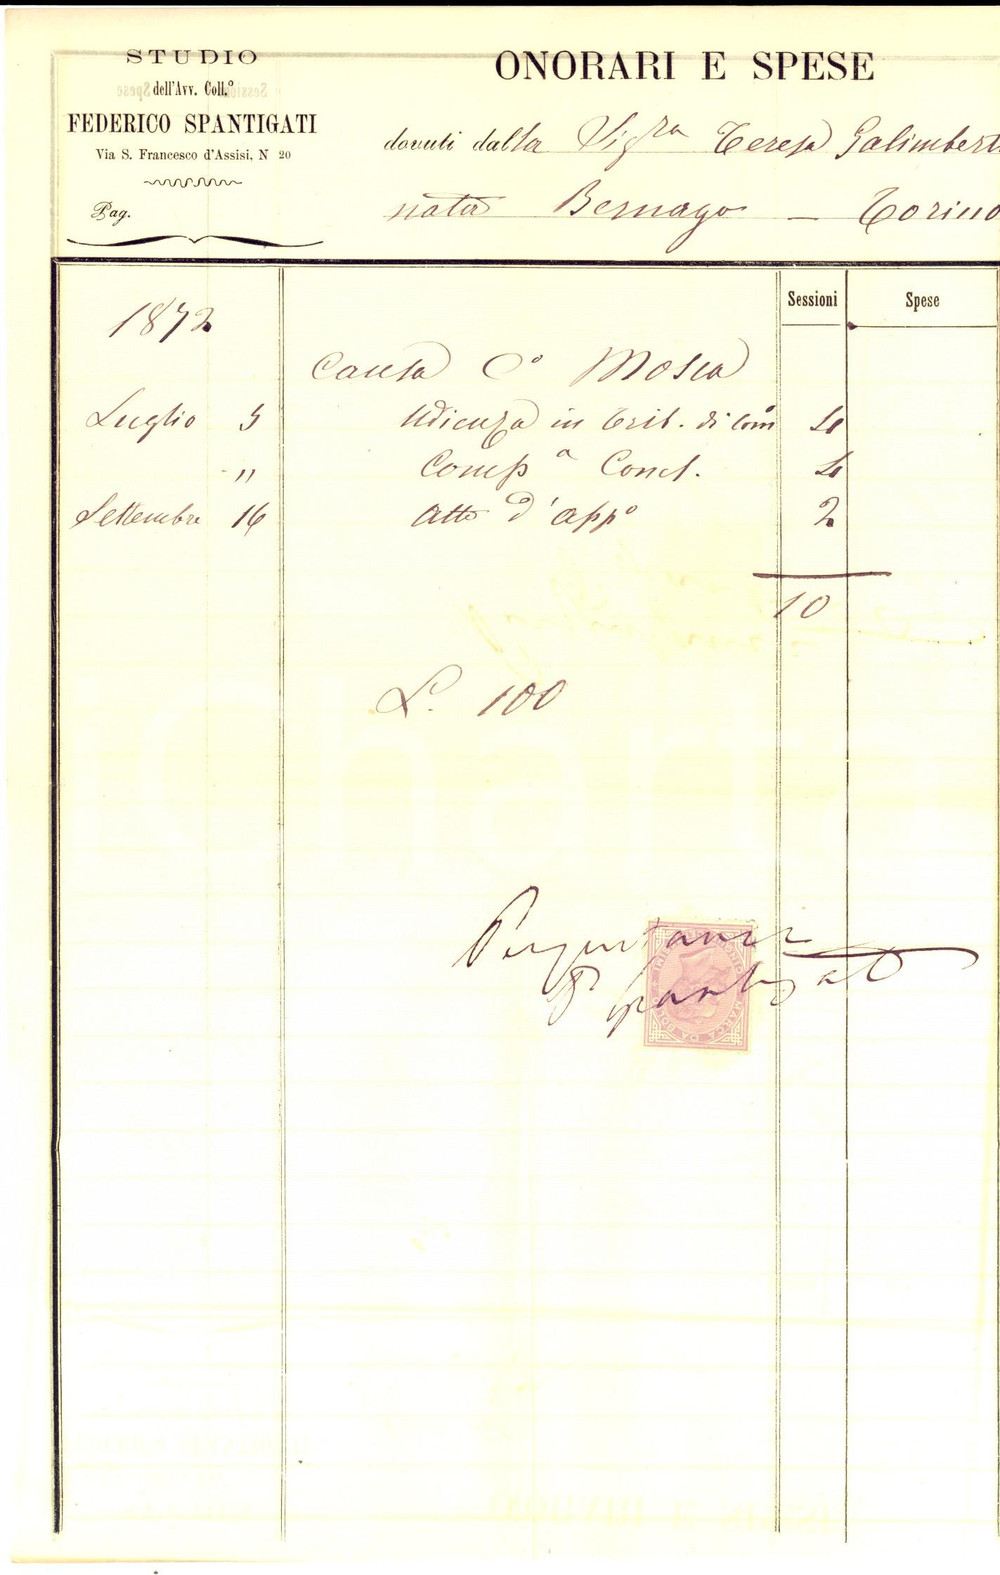 STUDIO
dell'Avv. Coll.º
FEDERICO SPANTIGATI
Via S. Francesco d'Assisi, N 20
Pag.
ONORARI E SPESE
dovuti dalla Sigra Teresa Galimberti
nata Bernago — Torino
Sessioni Spese
1872
Causa Cº Mosca
Luglio 5 Udienza in Trib. di Com 4
" Compª Concl. 4
Settembre 16 Atto d'appº 2
10
L. 100
Per quitanza
Spantigati
MARCA DA BOLLO